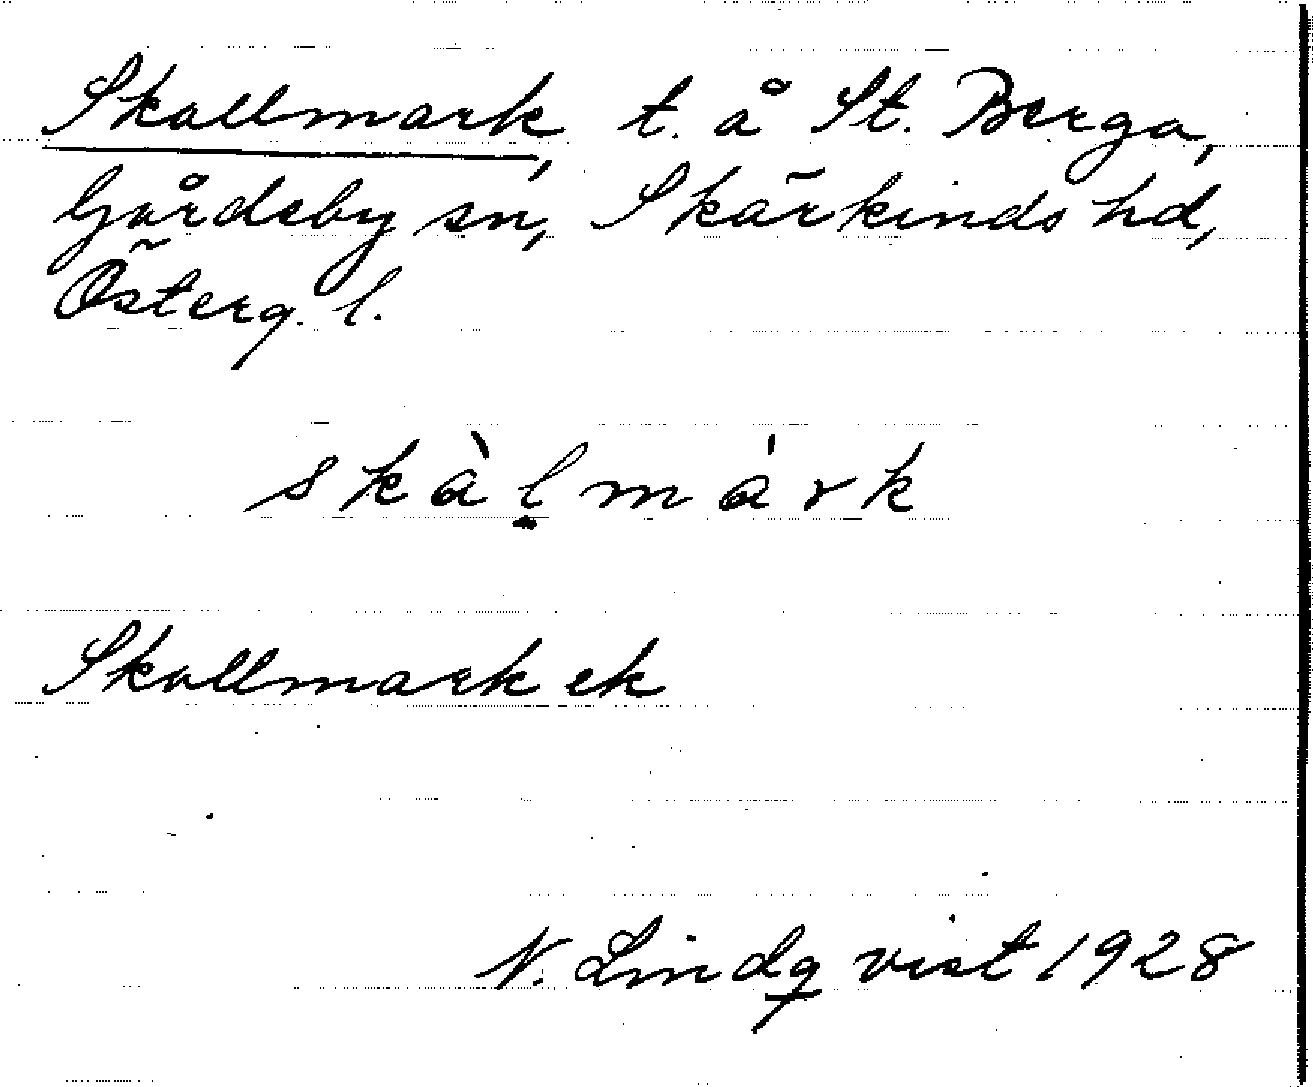 Skallmark, t. å St. Berga,
Gårdeby sn, Skärkinds hd,
Österg. l.
skàḷmárk
Skallmark ek
N. Lindqvist 1928